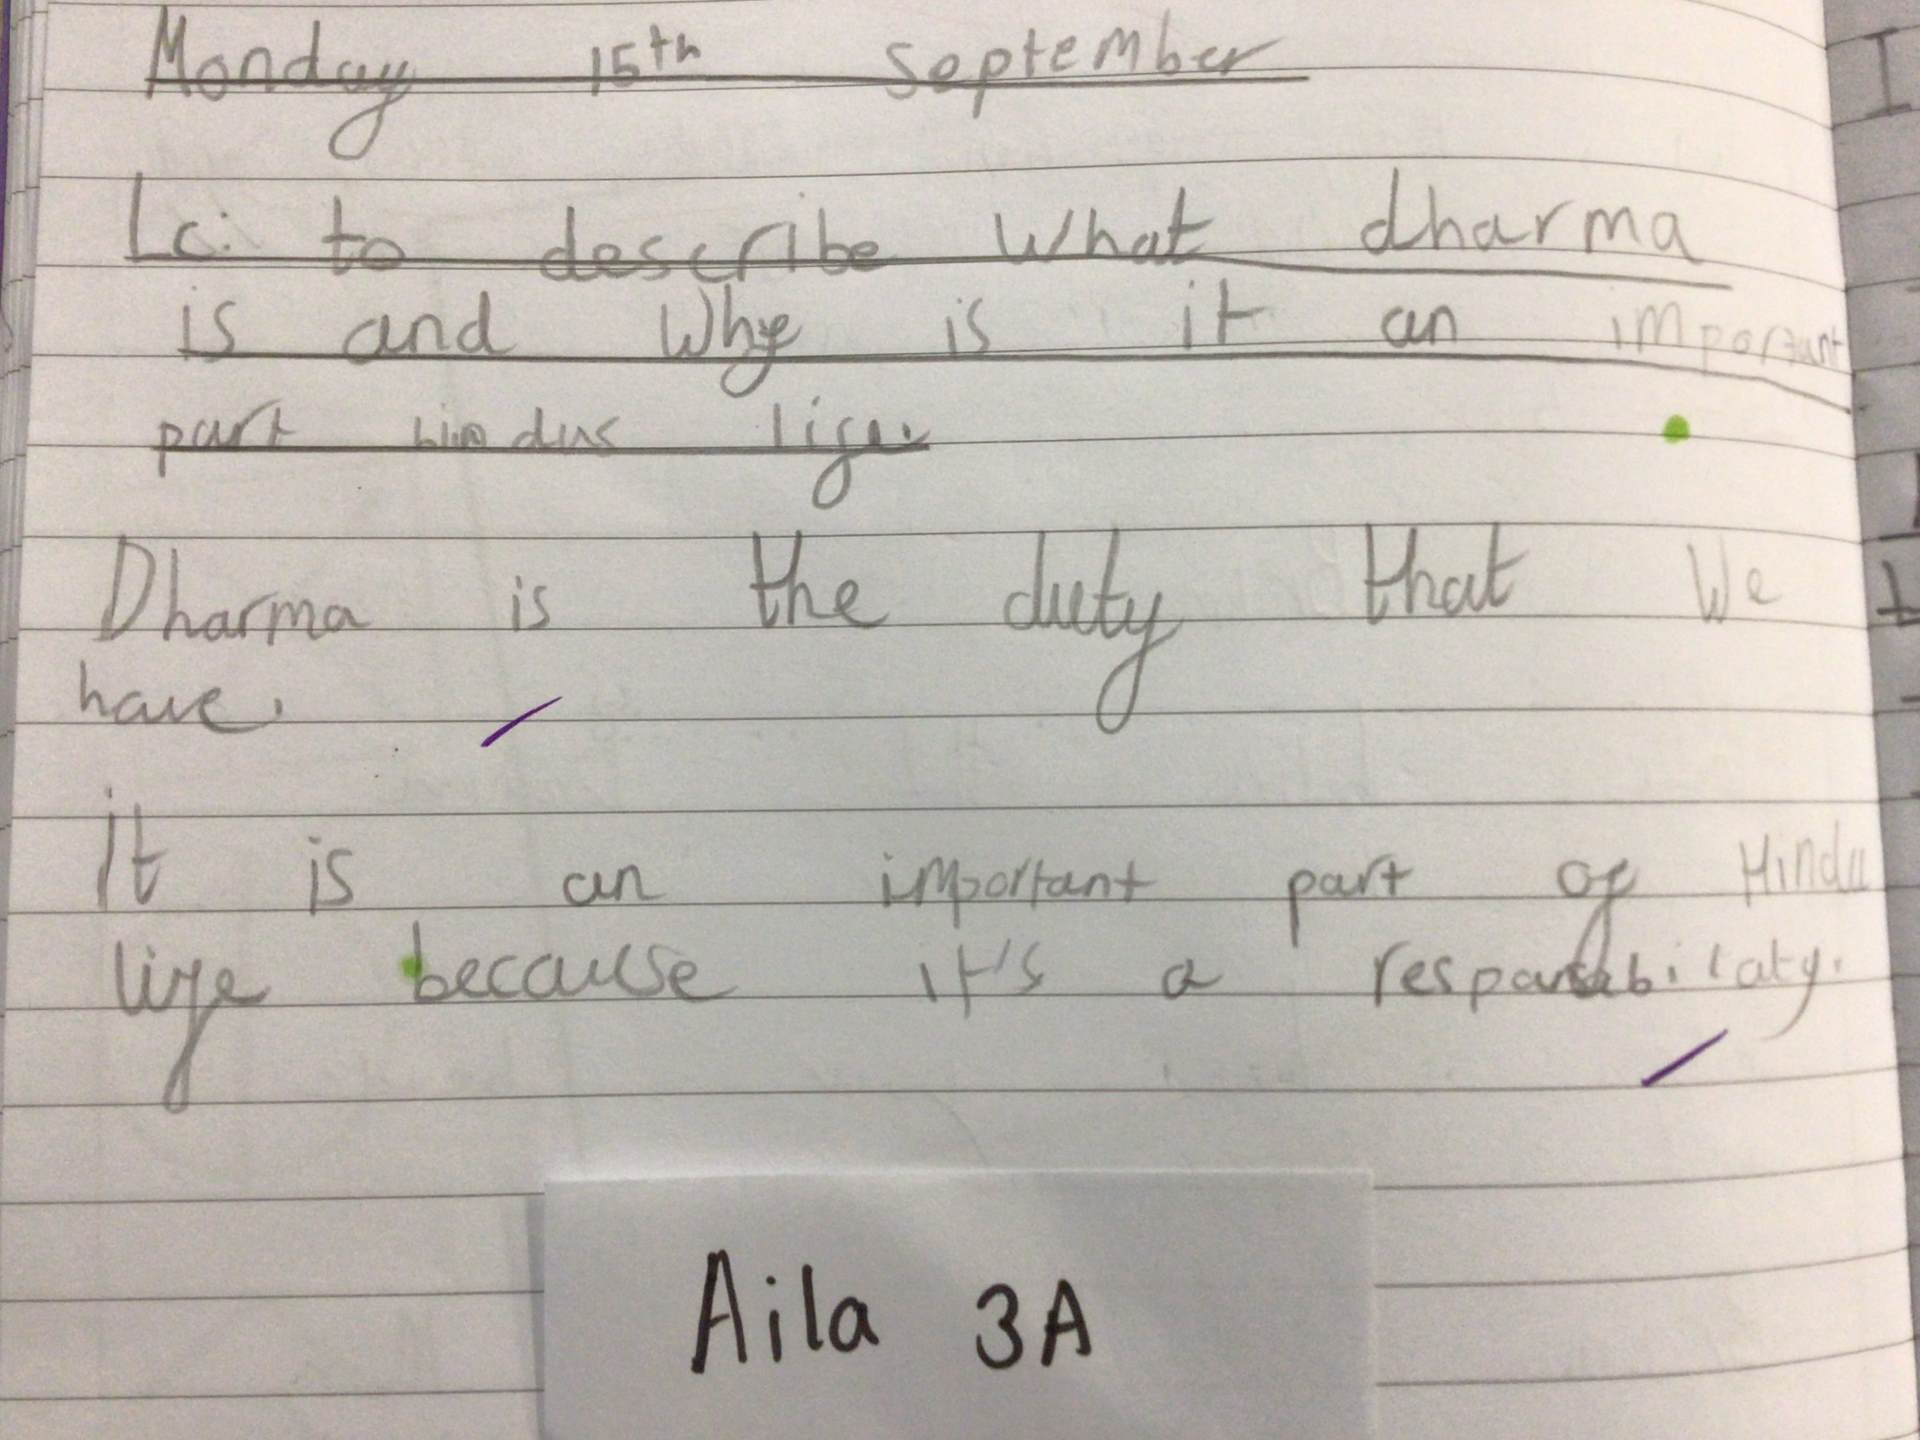 Monday 15th September
Lc: to describe what dharma
is and Why is it an important
part hindus life.
Dharma is the duty that We
have.
It is an important part of Hindu
life because it's a responsabilaty.
Aila 3A